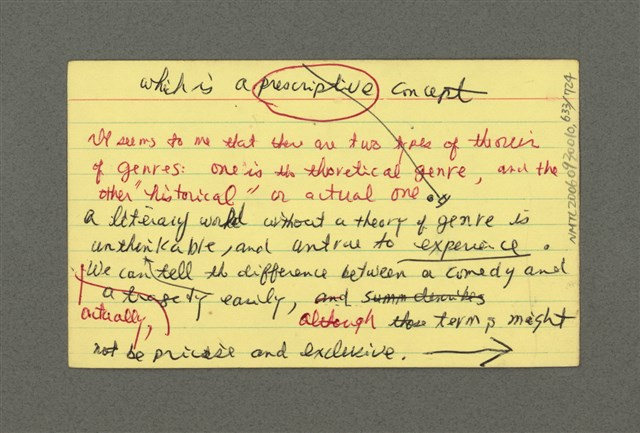 which is a prescriptive concept
It seems to me that there are two types of theories
of genres: one is the theoretical genre, and the
other "historical" or actual one.
a literary world without a theory of genre is
unthinkable, and untrue to experience.
We can tell the difference between a comedy and
a tragedy easily, and
actually, although those terms might
not be precise and exclusive.
NMTL20060930010, 633/724